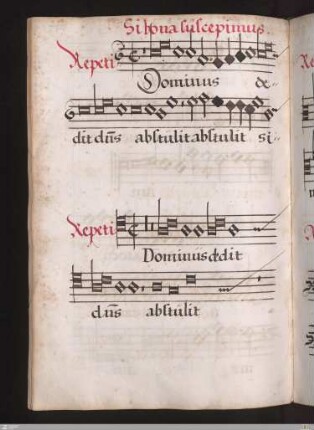 Si bona suscepimus.
Repeti
Dominus de-
dit dns abstulit abstulit si-
Repeti
Dominus dedit
dns abstulit